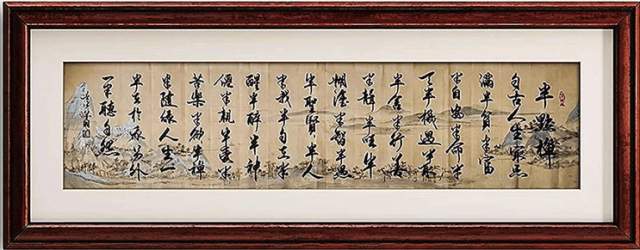 半點禪
自古人生最忌
滿半貧半富
半自安半命半
天半機遇半取
半舍半行善
半聾半啞半
糊塗半智半愚
半聖賢半人
半我半自在半
醒半醉半神
仙半親半愛半
苦樂半俗半禪
半隨緣人生一
半在於我另外
一半聽自然